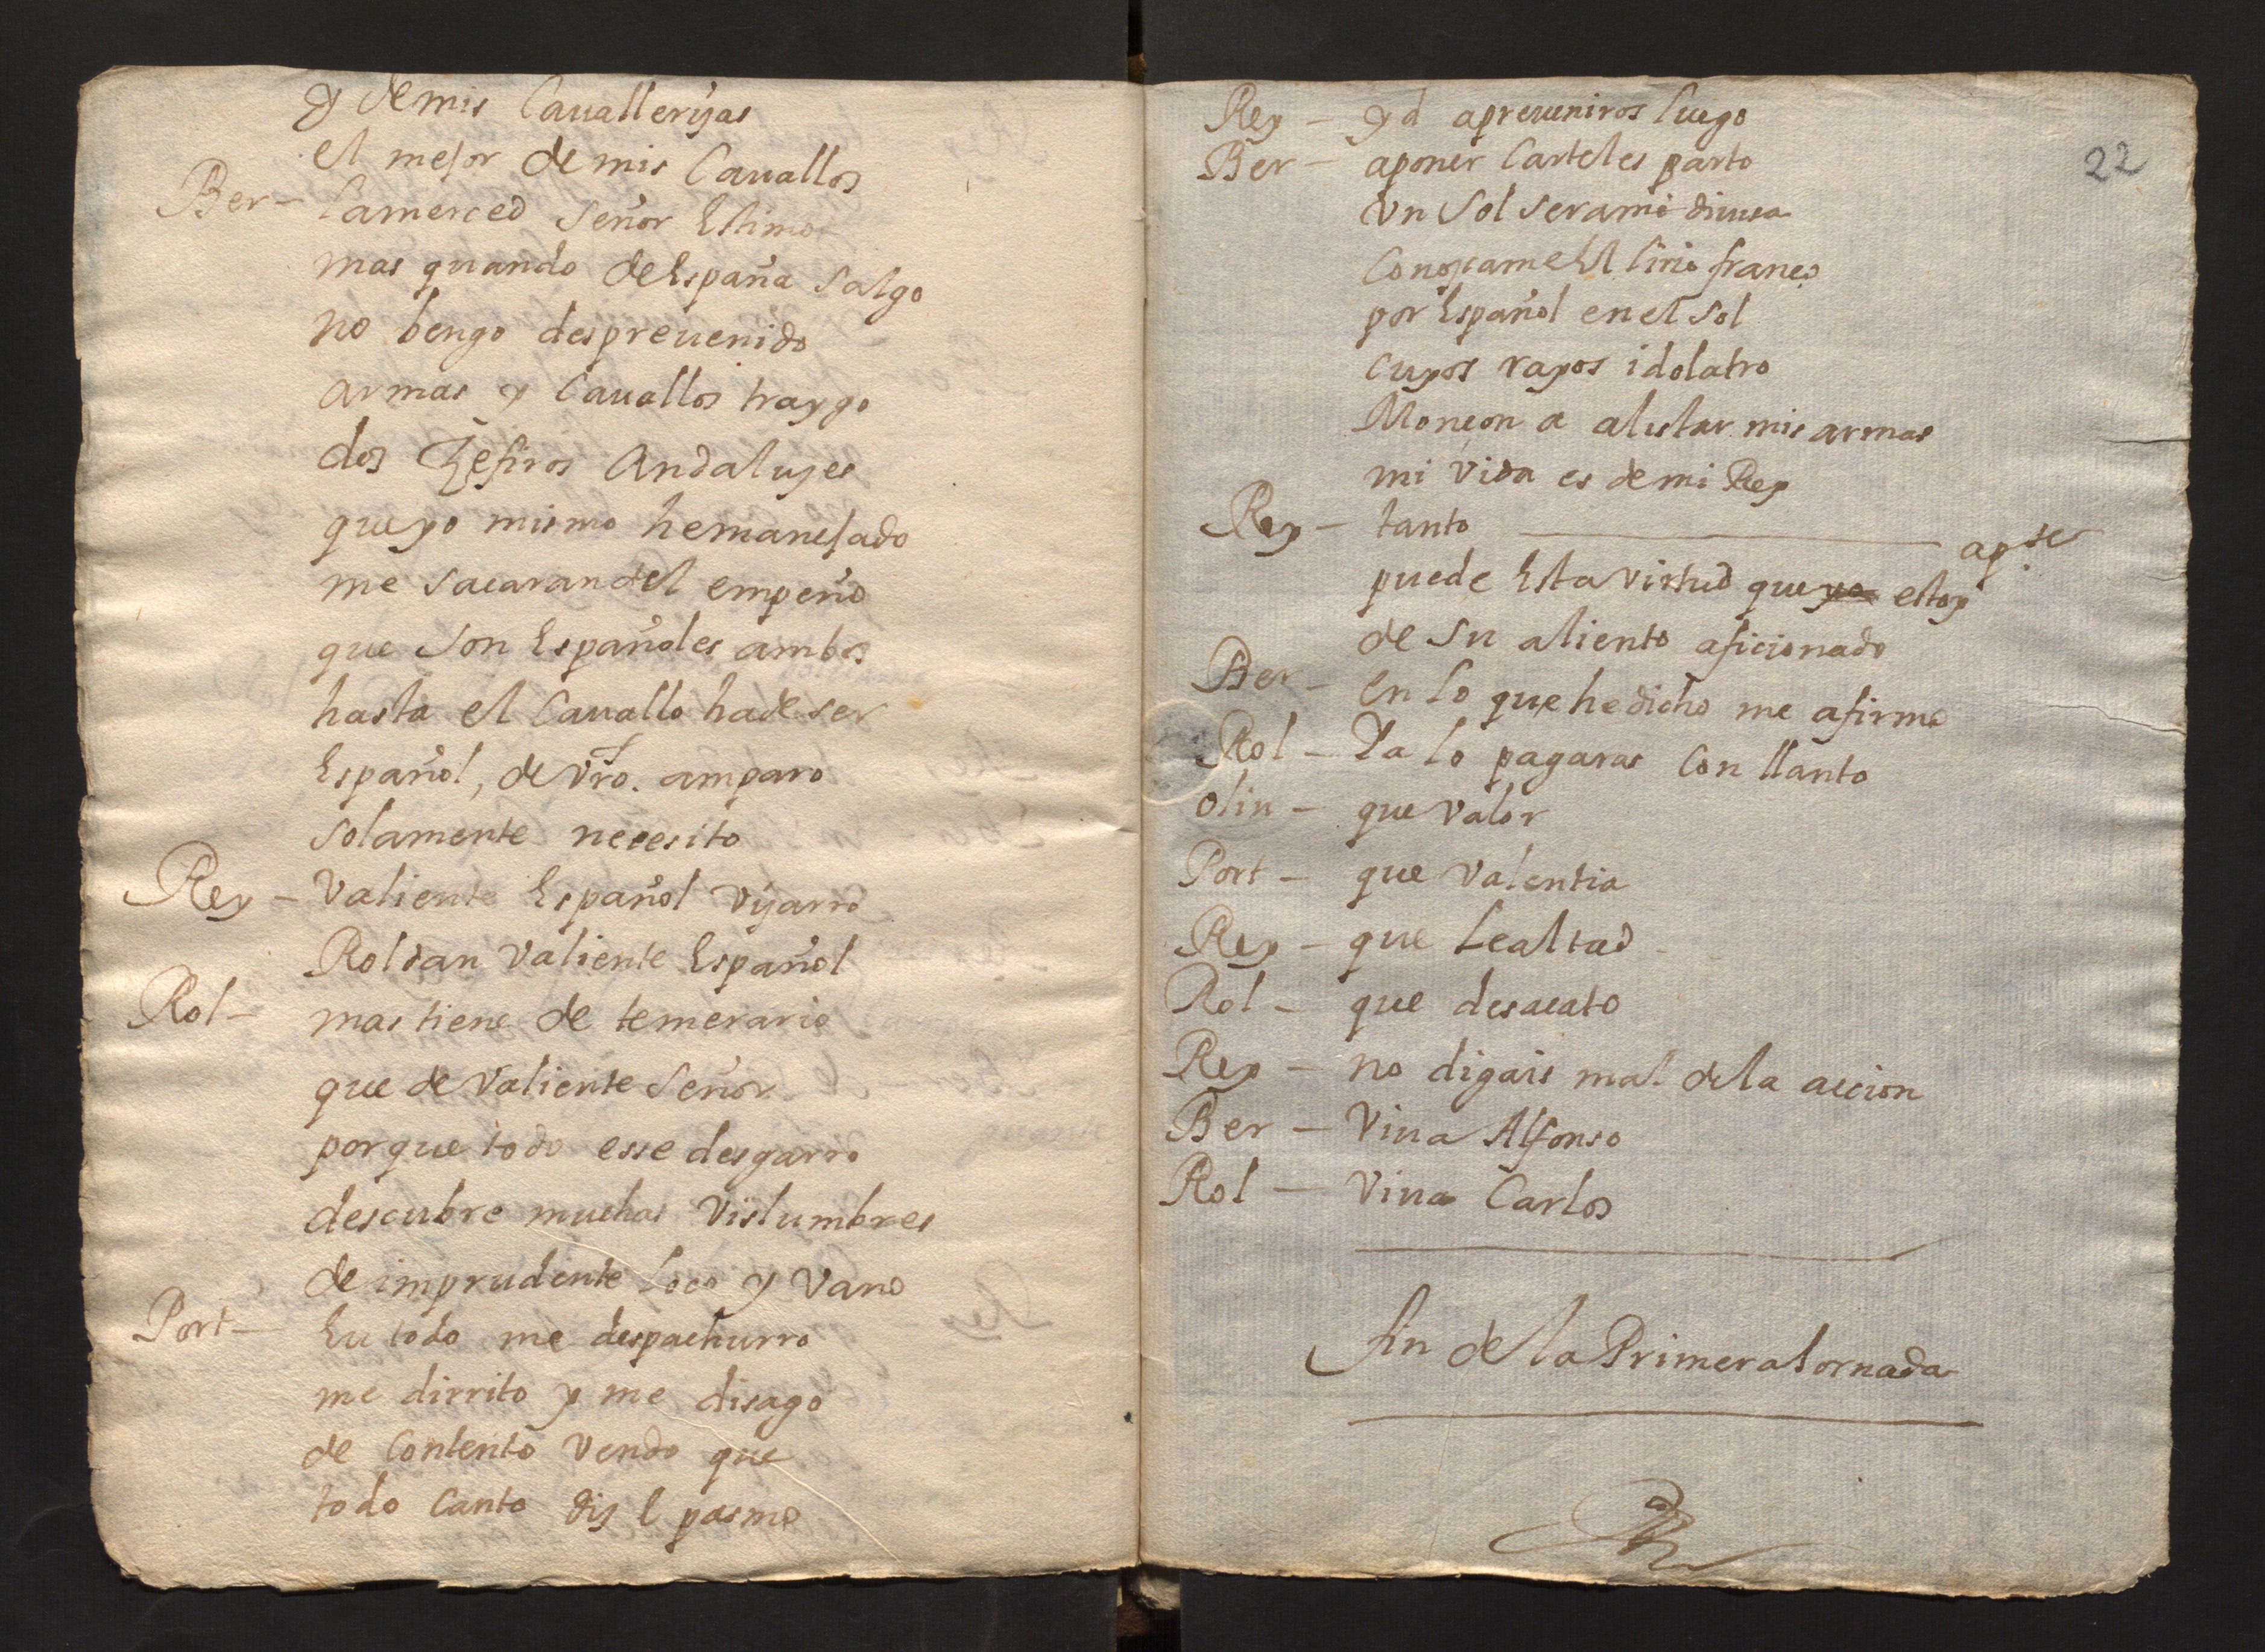 y de mis Cauallerijas
el mejor de mis Cauallos
Ber - la merced señor Estimo
mas quando de España salgo
no bengo despreuenido
armas y Cauallos traygo
dos Zefiros Andaluzes
que yo mismo he manejado
me sacaran del empeño
que son Españoles ambos
hasta el Cauallo ha de ser
Español, de Vro. amparo
solamente necesito
Rey - Valiente Español vijarro
Roldan valiente Español
Rol - mas tiene de temerario
que de valiente señor
porque todo esse desgarro
descubre muchas vislumbres
de imprudente loco y vano
Port - Eu todo me despachurro
me dirrito y me disago
de contento vendo que
todo canto diz l pasmo
22
Rey - yd a preueniros luego
Ber - a poner Carteles parto
Vn Sol sera mi diuisa
Conozcame El lirio franco
por Español en el sol
cuyos rayos idolatro
Monçon a alistar mis armas
mi vida es de mi Rey
Rey - tanto ap.te
puede Esta virtud que yo estoy
de su aliento aficionado
Ber - en lo que he dicho me afirmo
Rol - Ya lo pagaras con llanto
olin - que valor
Port - que valentia
Rey - que Lealtad
Rol - que desacato
Rey - no digais mal de la accion
Ber - Viua Alfonso
Rol - Viua Carlos
fin de la Primera Jornada